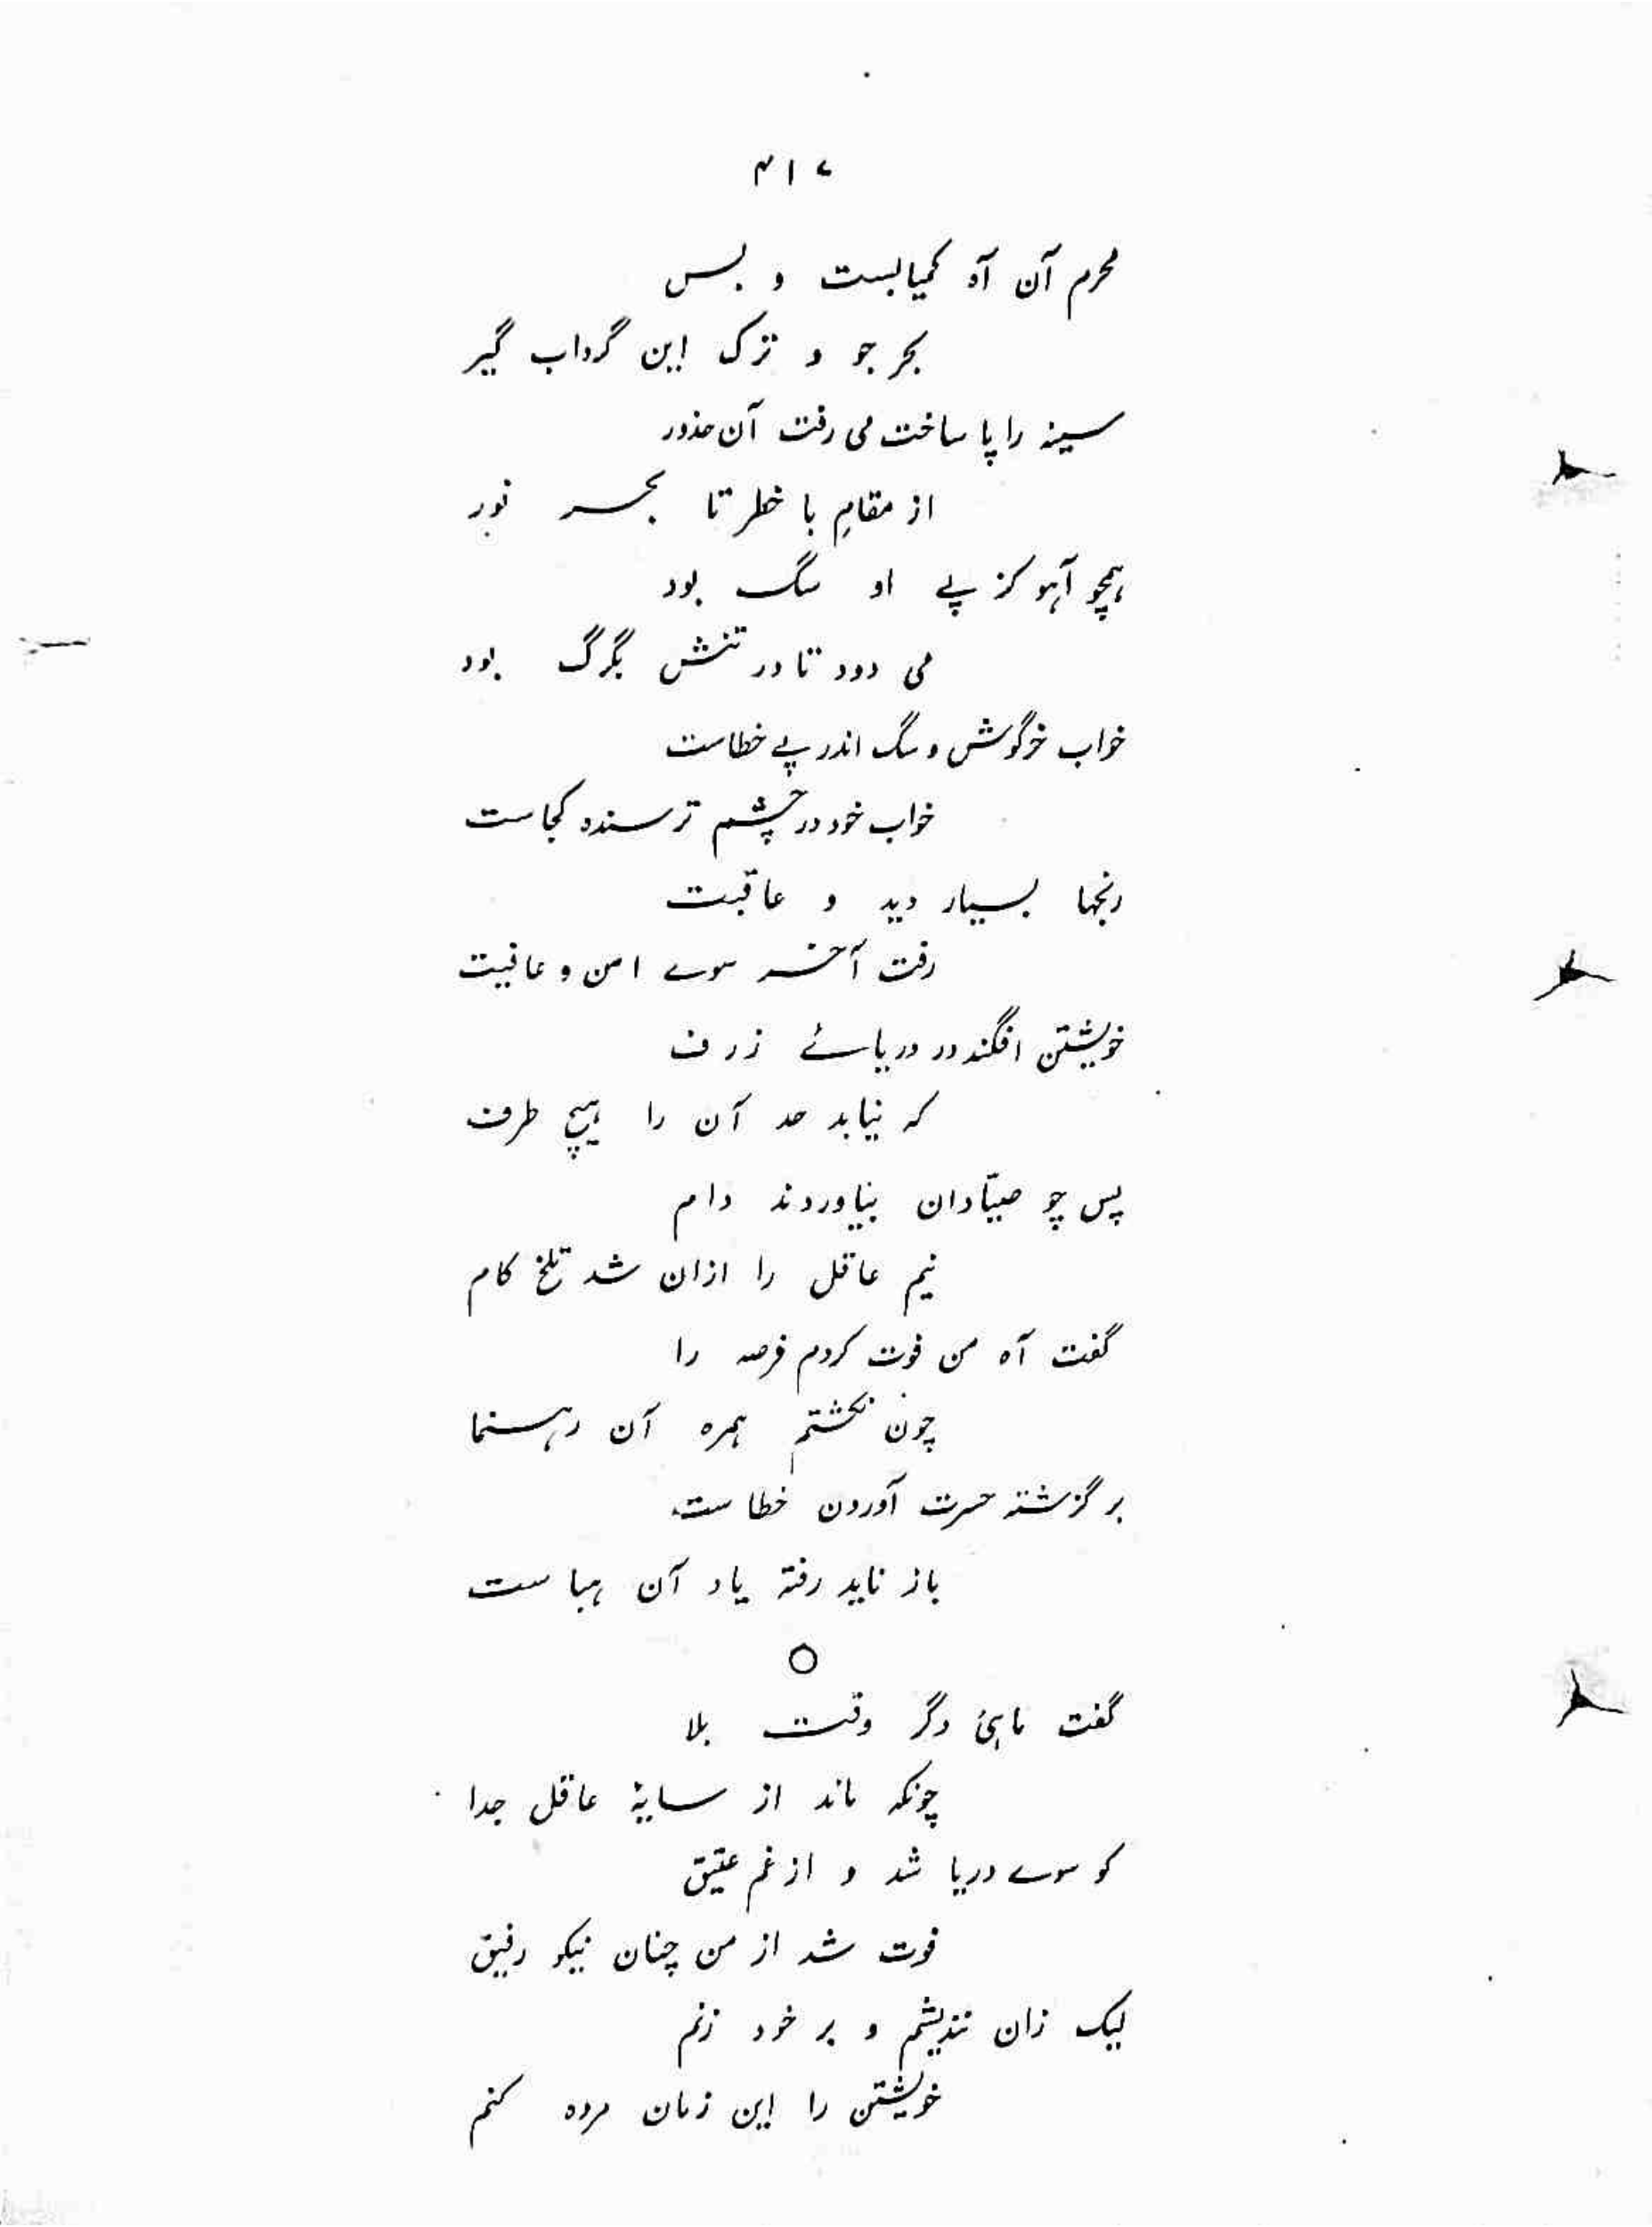 ۴۱۷
محرم آن آہ کمیابست و بس
بحر جو و ترک این گرداب گیر
سینہ را پا ساخت می رفت آن حذور
از مقامِ با خطر تا بحر نور
ہمچو آہو کز پے او سگ بود
می دود تا در تنش یگرگ بود
خواب خرگوش و سگ اندر پے خطاست
خواب خود در چشم ترسندہ کجاست
رنجہا بسیار دید و عاقبت
رفت آخر سوے امن و عافیت
خویشتن افگند در دریائے ژرف
کہ نیابد حد آن را ہیچ طرف
پس چو صیّادان بیاوردند دام
نیم عاقل را ازان شد تلخ کام
گفت آہ من فوت کردم فرصہ را
چون نگشتم ہمرہ آن رہنما
بر گزشتہ حسرت آوردن خطاست
باز ناید رفتہ یاد آن ہباست
گفت ماہیٔ دگر وقت بلا
چونکہ ماند از سایۂ عاقل جدا
کو سوے دریا شد و از غم عتیق
فوت شد از من چنان نیکو رفیق
لیک زان نندیشم و بر خود زنم
خویشتن را این زمان مردہ کنم